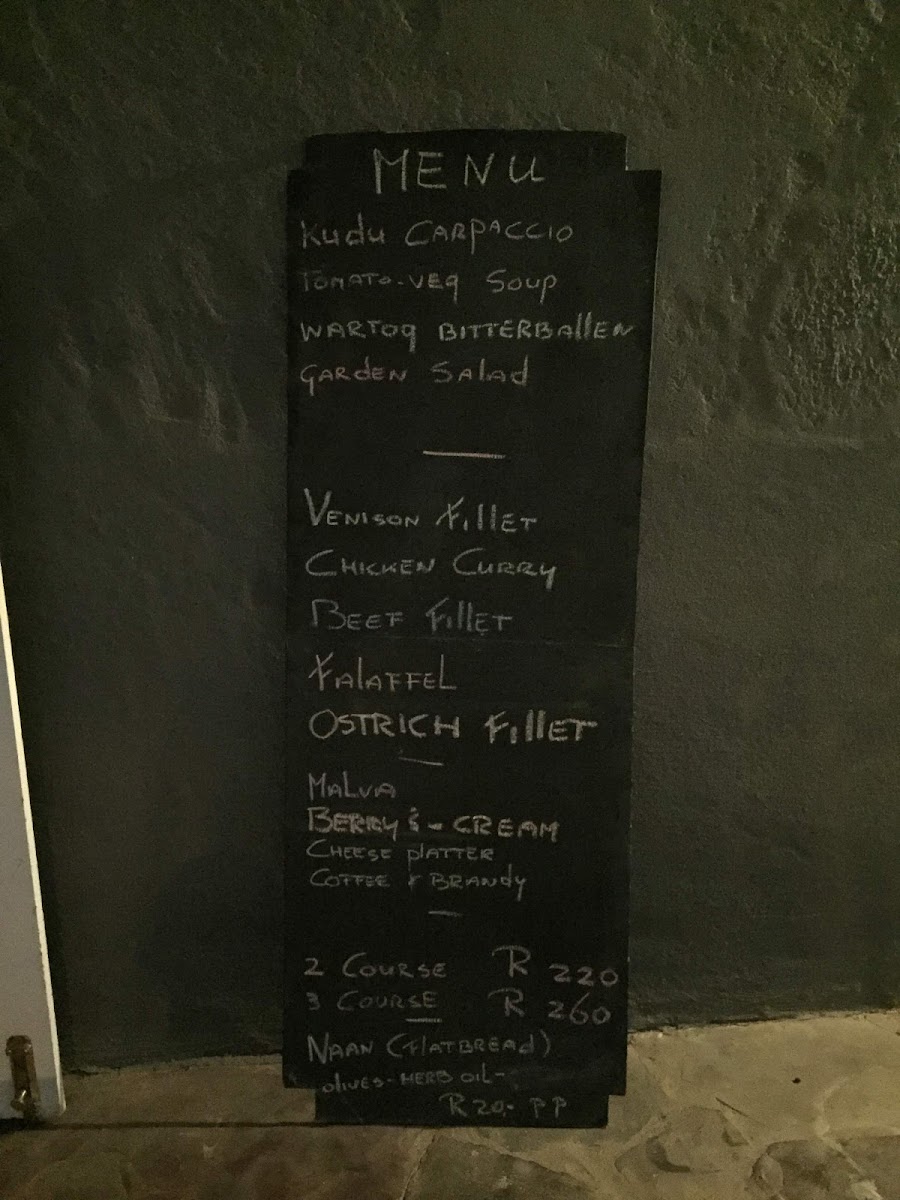 MENU
Kudu CARPACCIO
TOMATO-VEG SOUP
WARTOG BITTERBAllEN
GARdEN Salad
VENISON FillET
CHICKEN CURRY
BEEF FillET
FALAFFEL
OSTRICH FillET
MALVA
BERRY i-CREAM
CHEESE plATTER
COFFEE & BRANdy
2 COURSE R 220
3 COURSE R 260
NAAN (FlATBREAd)
OliVES-HERB OIL-
R20,- PP